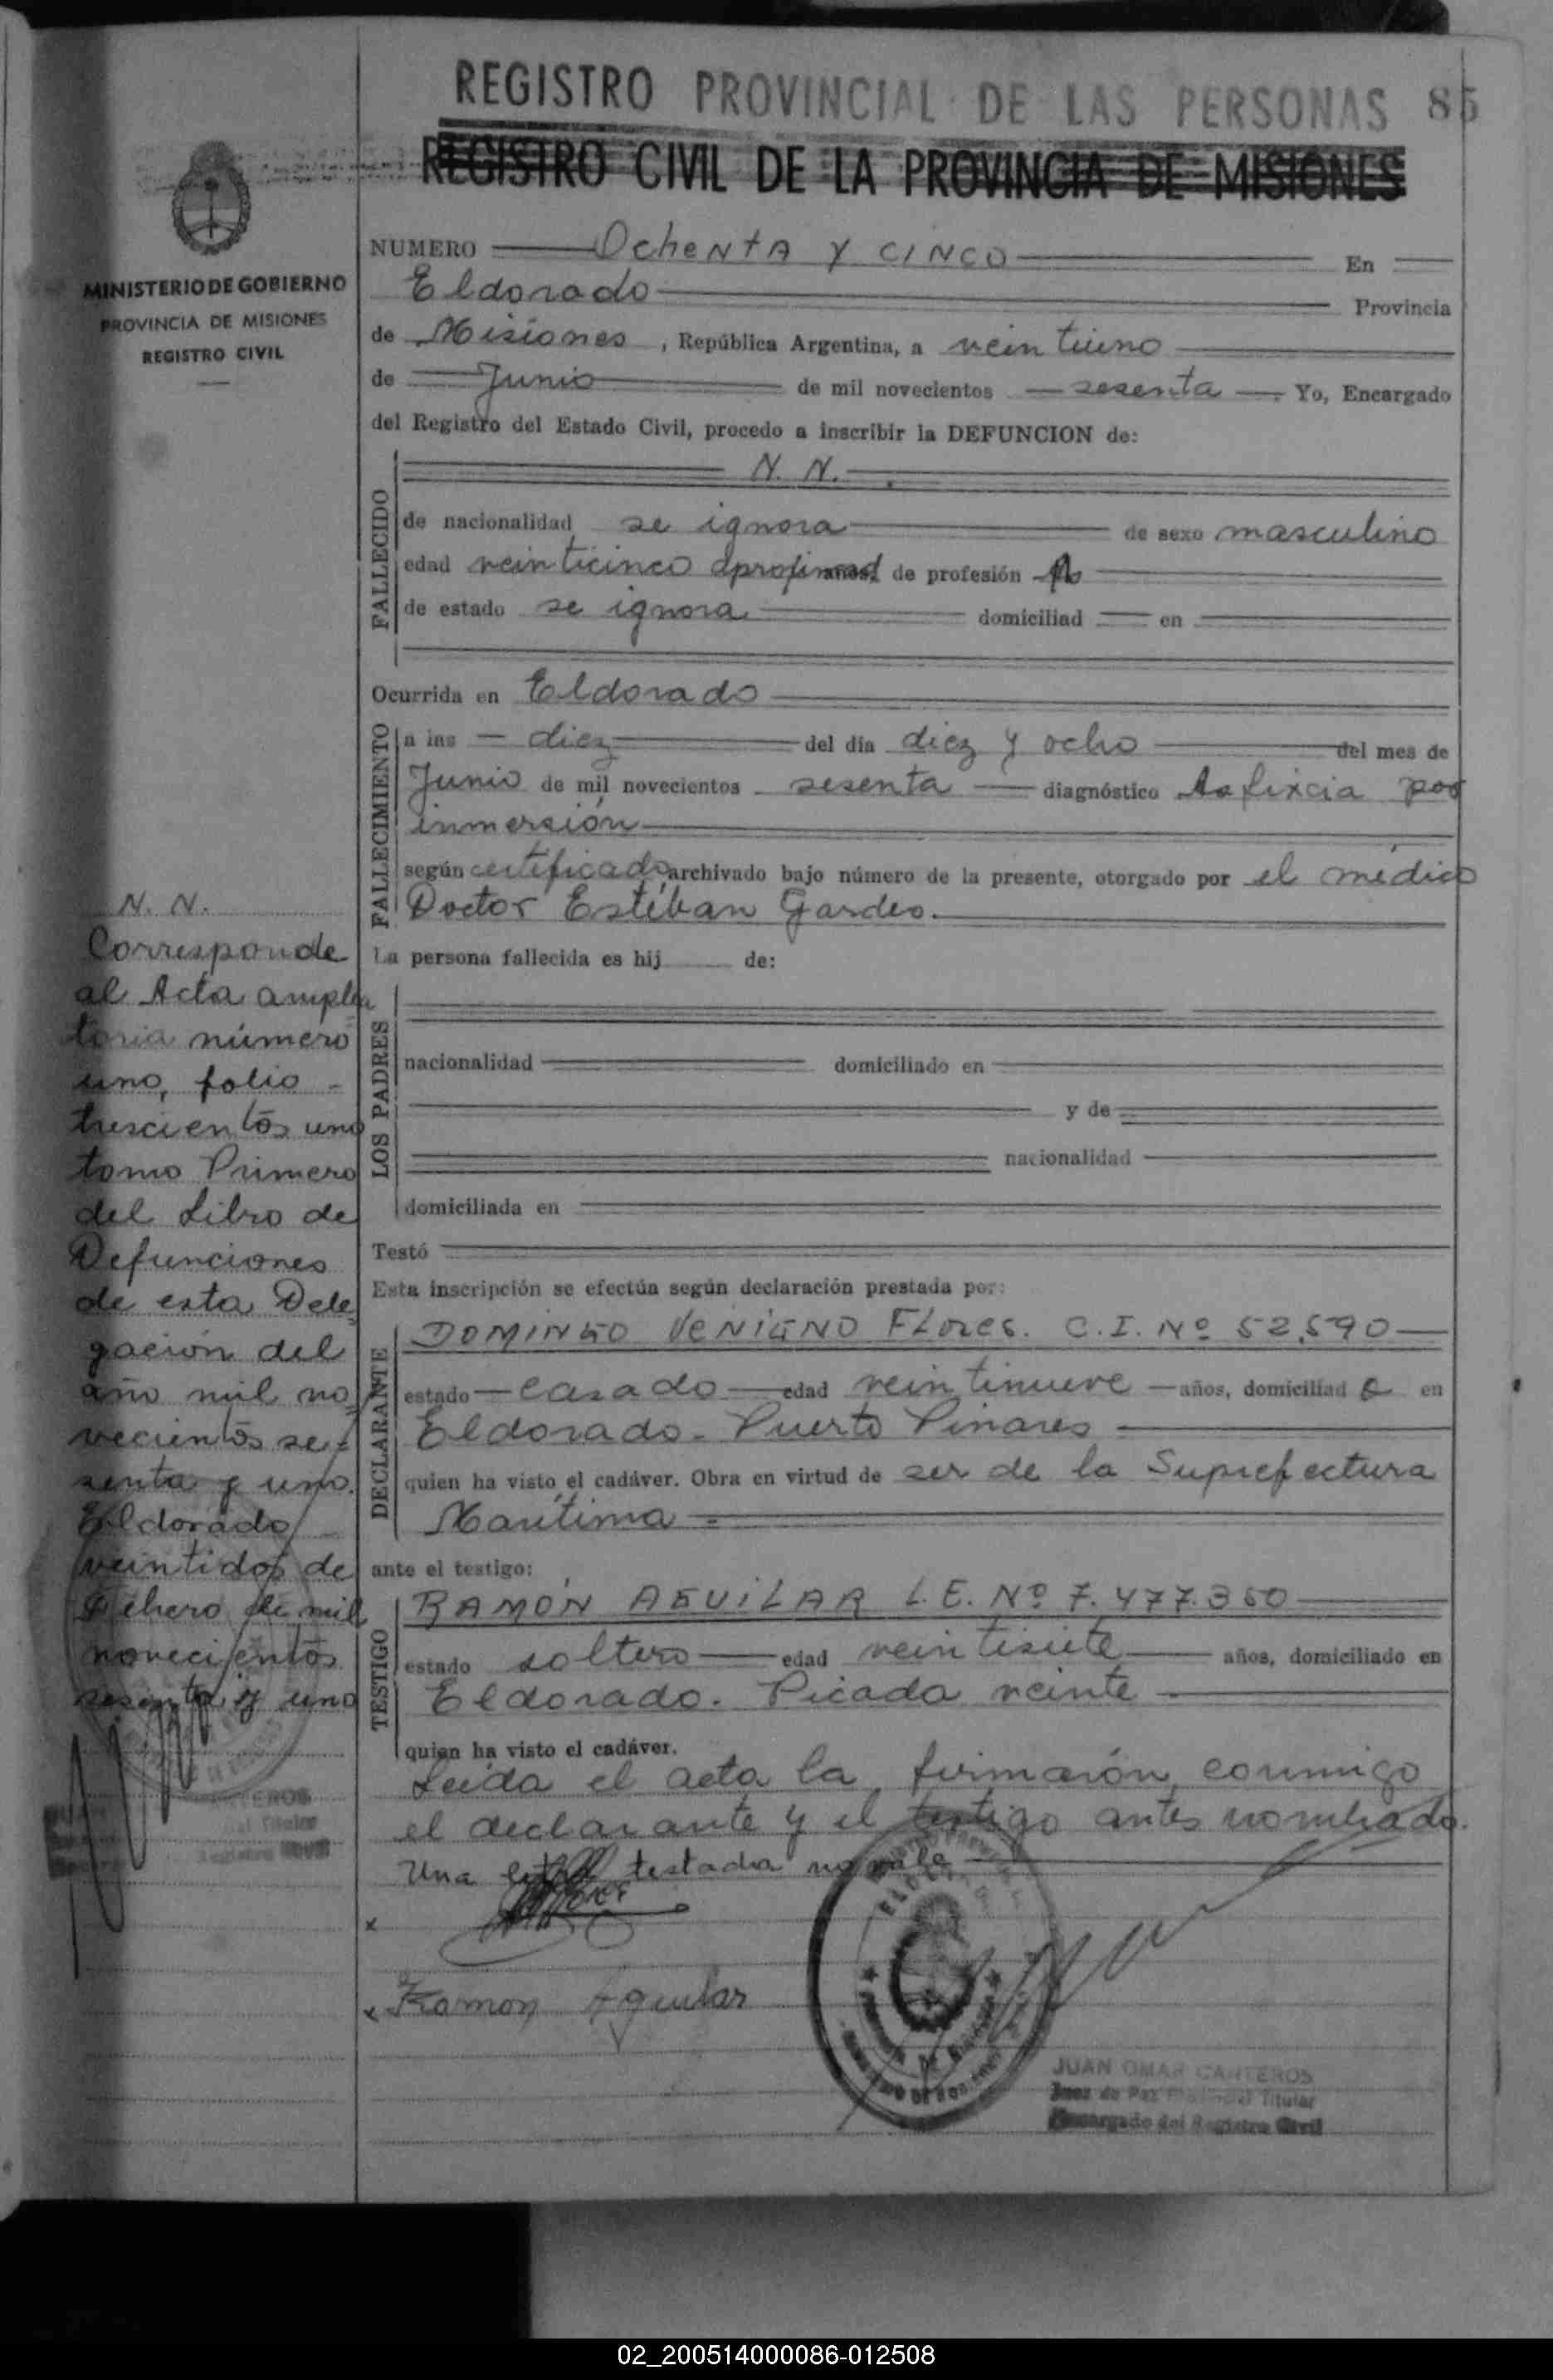 REGISTRO PROVINCIAL DE LAS PERSONAS 85
REGISTRO CIVIL DE LA PROVINCIA DE MISIONES
MINISTERIO DE GOBIERNO
PROVINCIA DE MISIONES
REGISTRO CIVIL
NUMERO Ochenta y cinco En
Eldorado Provincia
de Misiones, República Argentina, a veintiuno
de Junio de mil novecientos sesenta. Yo, Encargado
del Registro del Estado Civil, procedo a inscribir la DEFUNCION de:
N. N.
FALLECIDO
de nacionalidad se ignora de sexo masculino
edad veinticinco aproximad años, de profesión
de estado se ignora domiciliad en
Ocurrida en Eldorado
FALLECIMIENTO
a las diez del día diez y ocho del mes de
Junio de mil novecientos sesenta diagnóstico Asfixcia por
inmersión
según certificado archivado bajo número de la presente, otorgado por el médico
Doctor Estéban Gardeo.
La persona fallecida es hij de:
LOS PADRES
nacionalidad domiciliado en
y de
nacionalidad
domiciliada en
Testó
Esta inscripción se efectúa según declaración prestada por:
DECLARANTE
DOMINGO VENIGNO FLores. C.I. Nº 52.590
estado casado edad veintinueve años, domiciliad o en
Eldorado - Puerto Pinares
quien ha visto el cadáver. Obra en virtud de ser de la Suprefectura
Marítima
ante el testigo:
TESTIGO
RAMÓN AGUILAR L.E. Nº 7.477.350
estado soltero edad veintisiete años, domiciliado en
Eldorado. Picada veinte
quien ha visto el cadáver.
Leída el acta la firmarón conmigo
el declarante y el testigo antes nombrado.
Una testada no vale
x
x Ramon Aguilar
JUAN OMAR CANTEROS
Juez de Paz Provincial Titular
Encargado del Registro Civil
N. N.
Corresponde
al Acta amplia
toria número
uno, folio
trescientos uno
tomo Primero
del Libro de
Defunciones
de esta Dele
gación del
año mil no
vecientos se
senta y uno.
Eldorado
veintidos de
Febrero de mil
novecientos
sesenta y uno
02_200514000086-012508